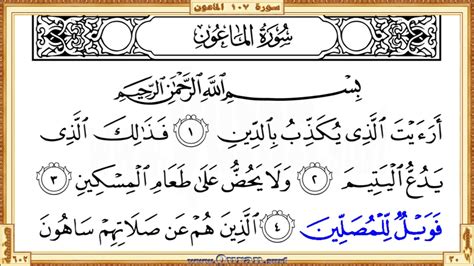 سورة ١٠٧ الماعون
سُورَةُ الْمَاعُونِ
بِسْمِ اللَّهِ الرَّحْمَٰنِ الرَّحِيمِ
أَرَءَيْتَ ٱلَّذِى يُكَذِّبُ بِٱلدِّينِ ١ فَذَٰلِكَ ٱلَّذِى
يَدُعُّ ٱلْيَتِيمَ ٢ وَلَا يَحُضُّ عَلَىٰ طَعَامِ ٱلْمِسْكِينِ ٣
فَوَيْلٌ لِّلْمُصَلِّينَ ٤ ٱلَّذِينَ هُمْ عَن صَلَاتِهِمْ سَاهُونَ
٦٠٢
٣٠